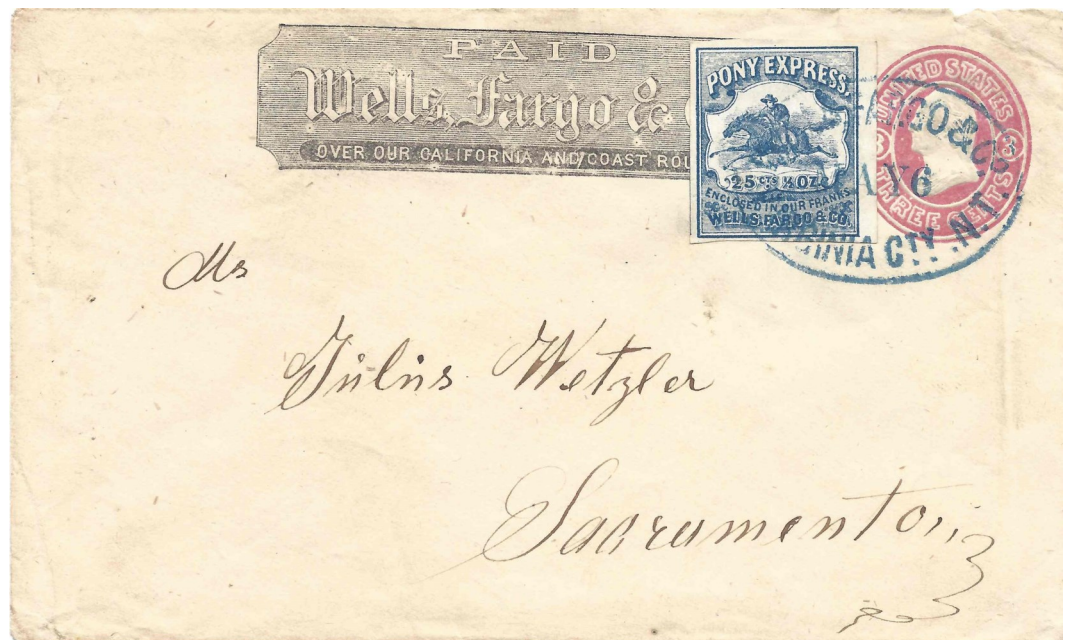 PAID
Wells, Fargo &
OVER OUR CALIFORNIA AND COAST
PONY EXPRESS.
25 cts ½ OZ.
ENCLOSED IN OUR FRANKS
WELLS, FARGO & CO.
UNITED STATES
3 3
THREE CENTS
& CO.
6
CTY N.T.
Ms
Julius Wetzler
Sacramento